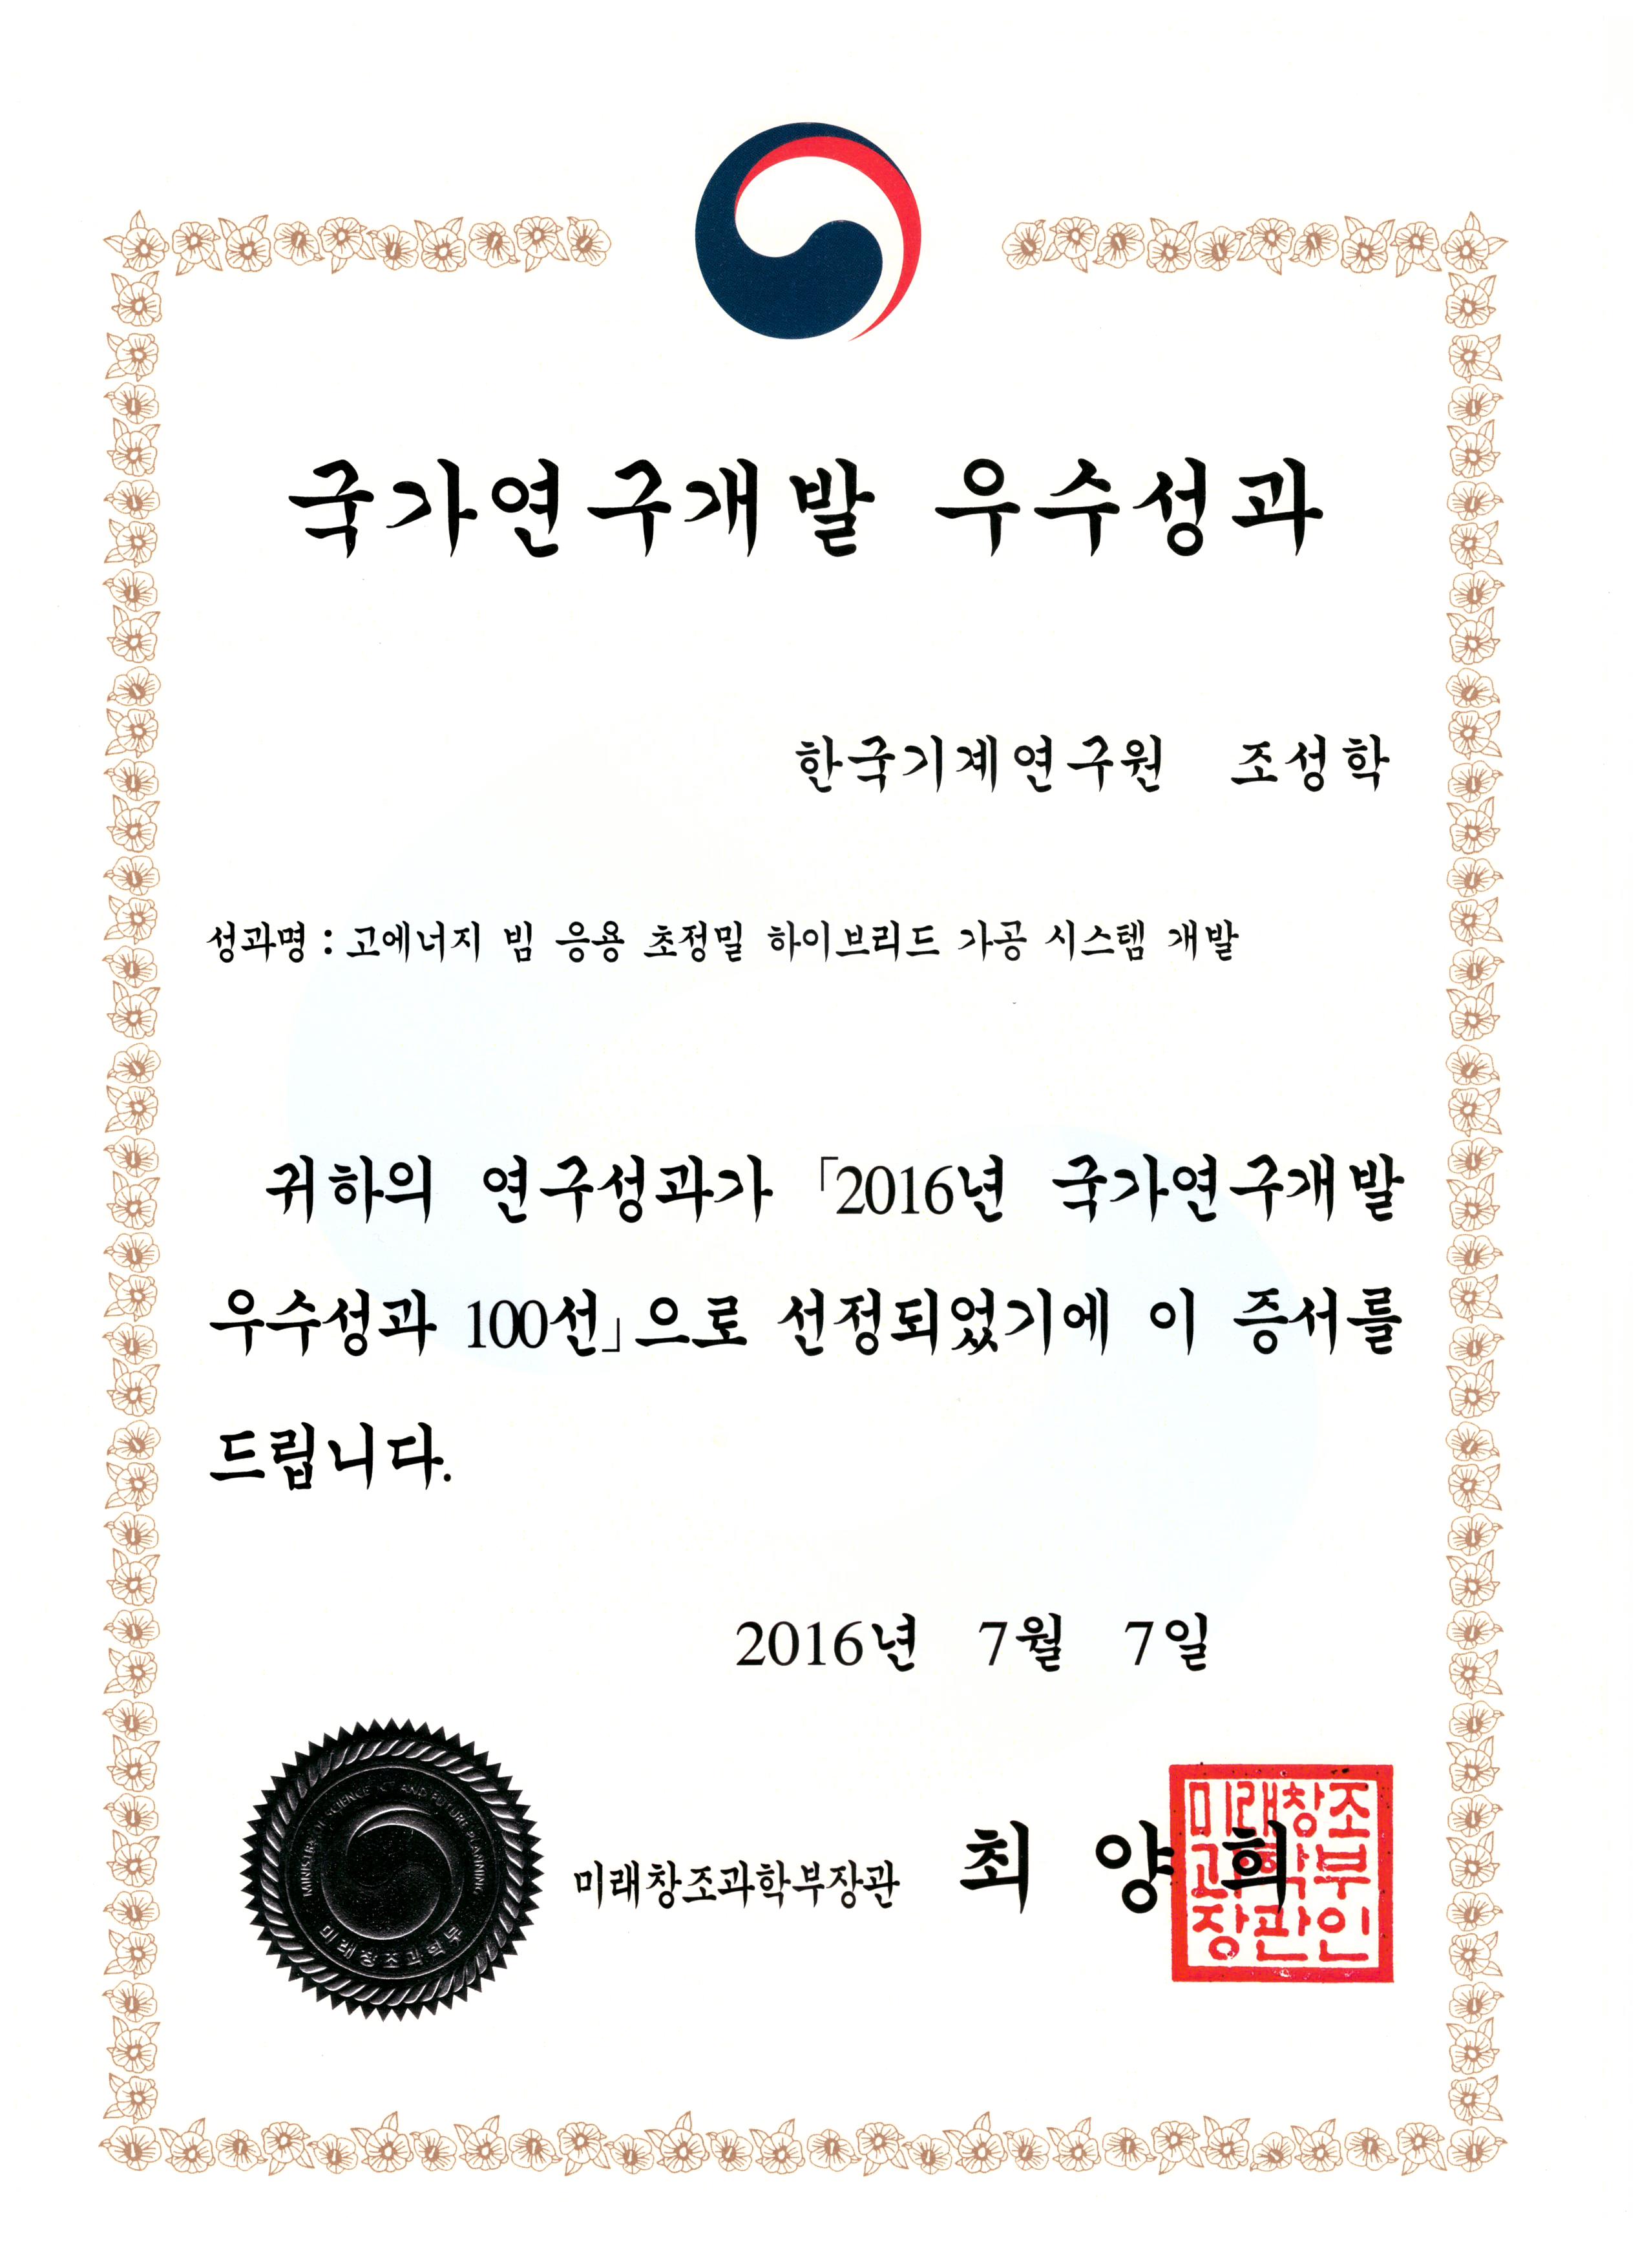 국가연구개발 우수성과
한국기계연구원 조성학
성과명 : 고에너지 빔 응용 초정밀 하이브리드 가공 시스템 개발
귀하의 연구성과가 「2016년 국가연구개발
우수성과 100선」으로 선정되었기에 이 증서를
드립니다.
2016년 7월 7일
MINISTRY OF SCIENCE, ICT AND FUTURE PLANNING
미래창조과학부
미래창조과학부장관 최양희
미래창조
과학부
장관인